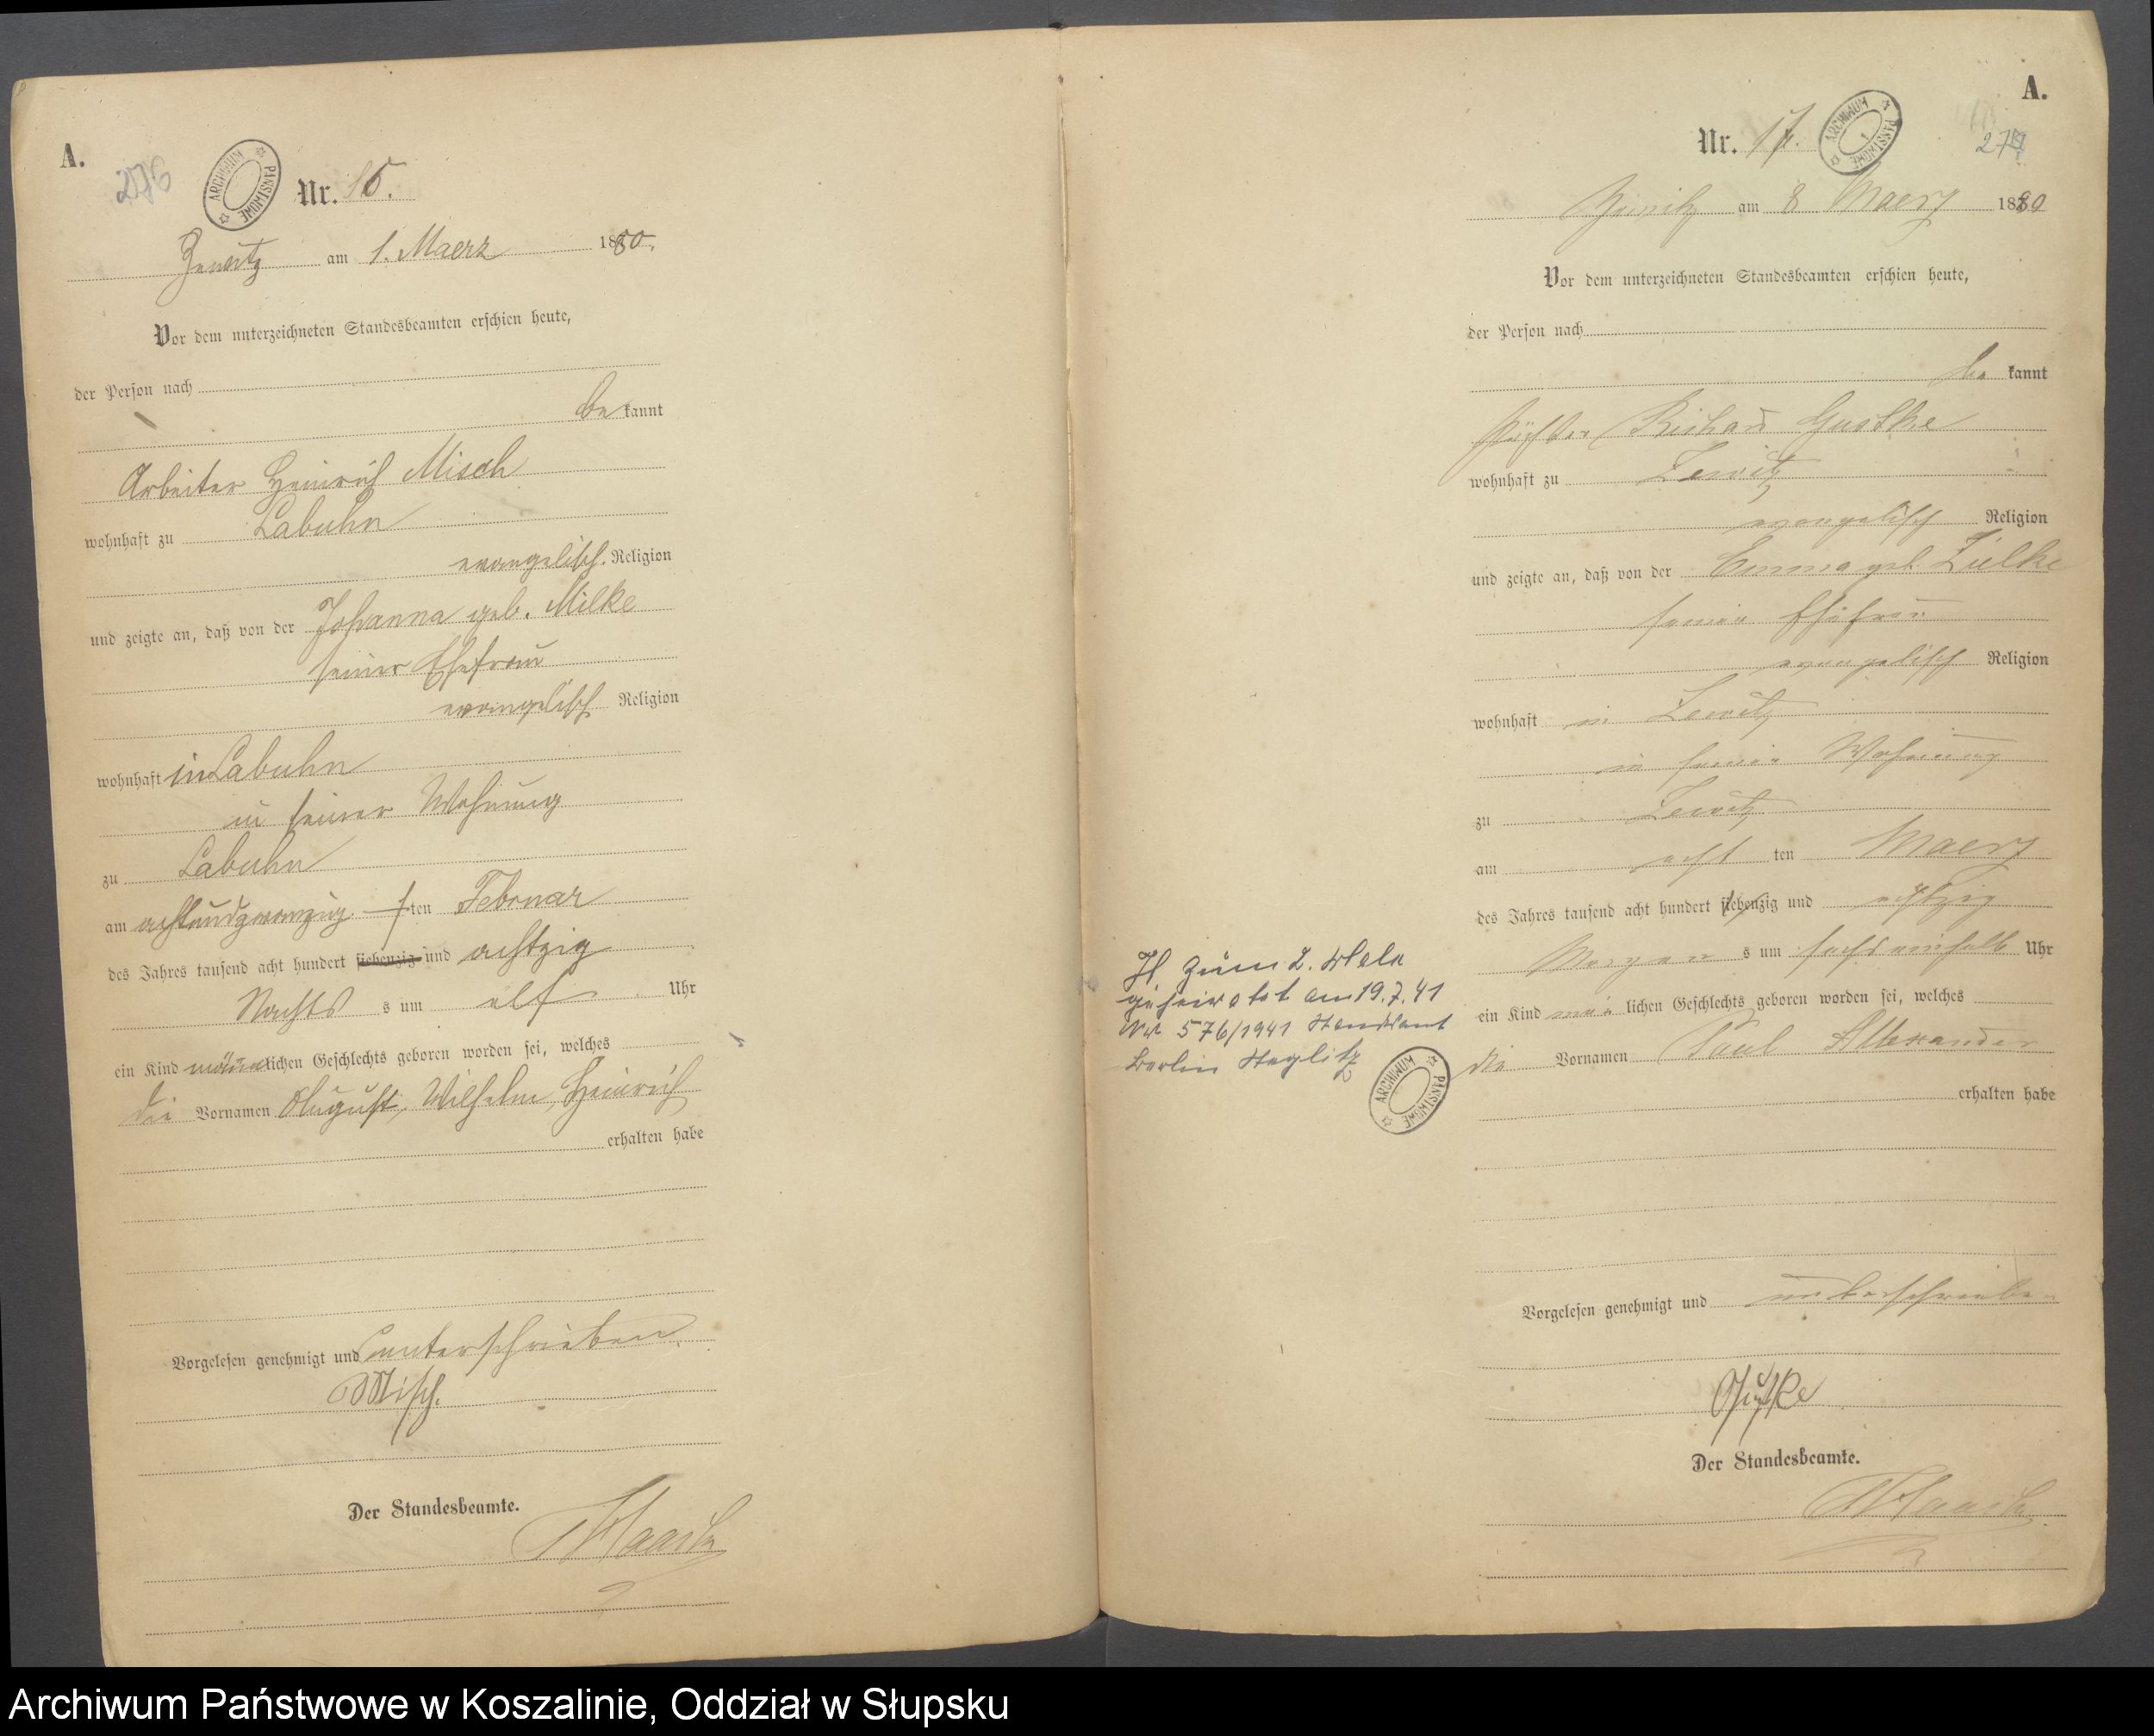 A.
276
ARCHIWUM PAŃSTWOWE
Nr. 16.
Zewitz am 1. Maerz 1880.
Vor dem unterzeichneten Standesbeamten erschien heute,
der Person nach
be kannt
Arbeiter Heinrich Misch
wohnhaft zu Labuhn
evangelisch. Religion
und zeigte an, daß von der Johanna geb. Milke
seiner Ehefrau
evangelisch Religion
wohnhaft in Labuhn
in seiner Wohnung
zu Labuhn
am achtundzwanzig ten Februar
des Jahres tausend acht hundert siebenzig und achtzig
Nachts s um elf Uhr
ein Kind männlichen Geschlechts geboren worden sei, welches
die Vornamen August, Wilhelm, Heinrich
erhalten habe
Vorgelesen genehmigt und unterschrieben.
Misch.
Der Standesbeamte.
A.
Nr. 17.
ARCHIWUM PAŃSTWOWE
277
am 8 Maerz 1880
Vor dem unterzeichneten Standesbeamten erschien heute,
der Person nach
be kannt
Richard Gustke
wohnhaft zu Zewitz
evangelisch Religion
und zeigte an, daß von der Emma geb. Zielke
seiner Ehefrau
evangelisch Religion
wohnhaft in Zewitz
in seiner Wohnung
zu Zewitz
am acht ten Maerz
des Jahres tausend acht hundert siebenzig und achtzig
Morgen s um sechseinhalb Uhr
ein Kind männlichen Geschlechts geboren worden sei, welches
die Vornamen Paul Allexander
erhalten habe
Vorgelesen genehmigt und unterschrieben
Gustke
Der Standesbeamte.
zum 2. Male
geheiratet am 19.7.41
Nr 576/1941 Standesamt
Berlin Steglitz
ARCHIWUM PAŃSTWOWE
Archiwum Państwowe w Koszalinie, Oddział w Słupsku